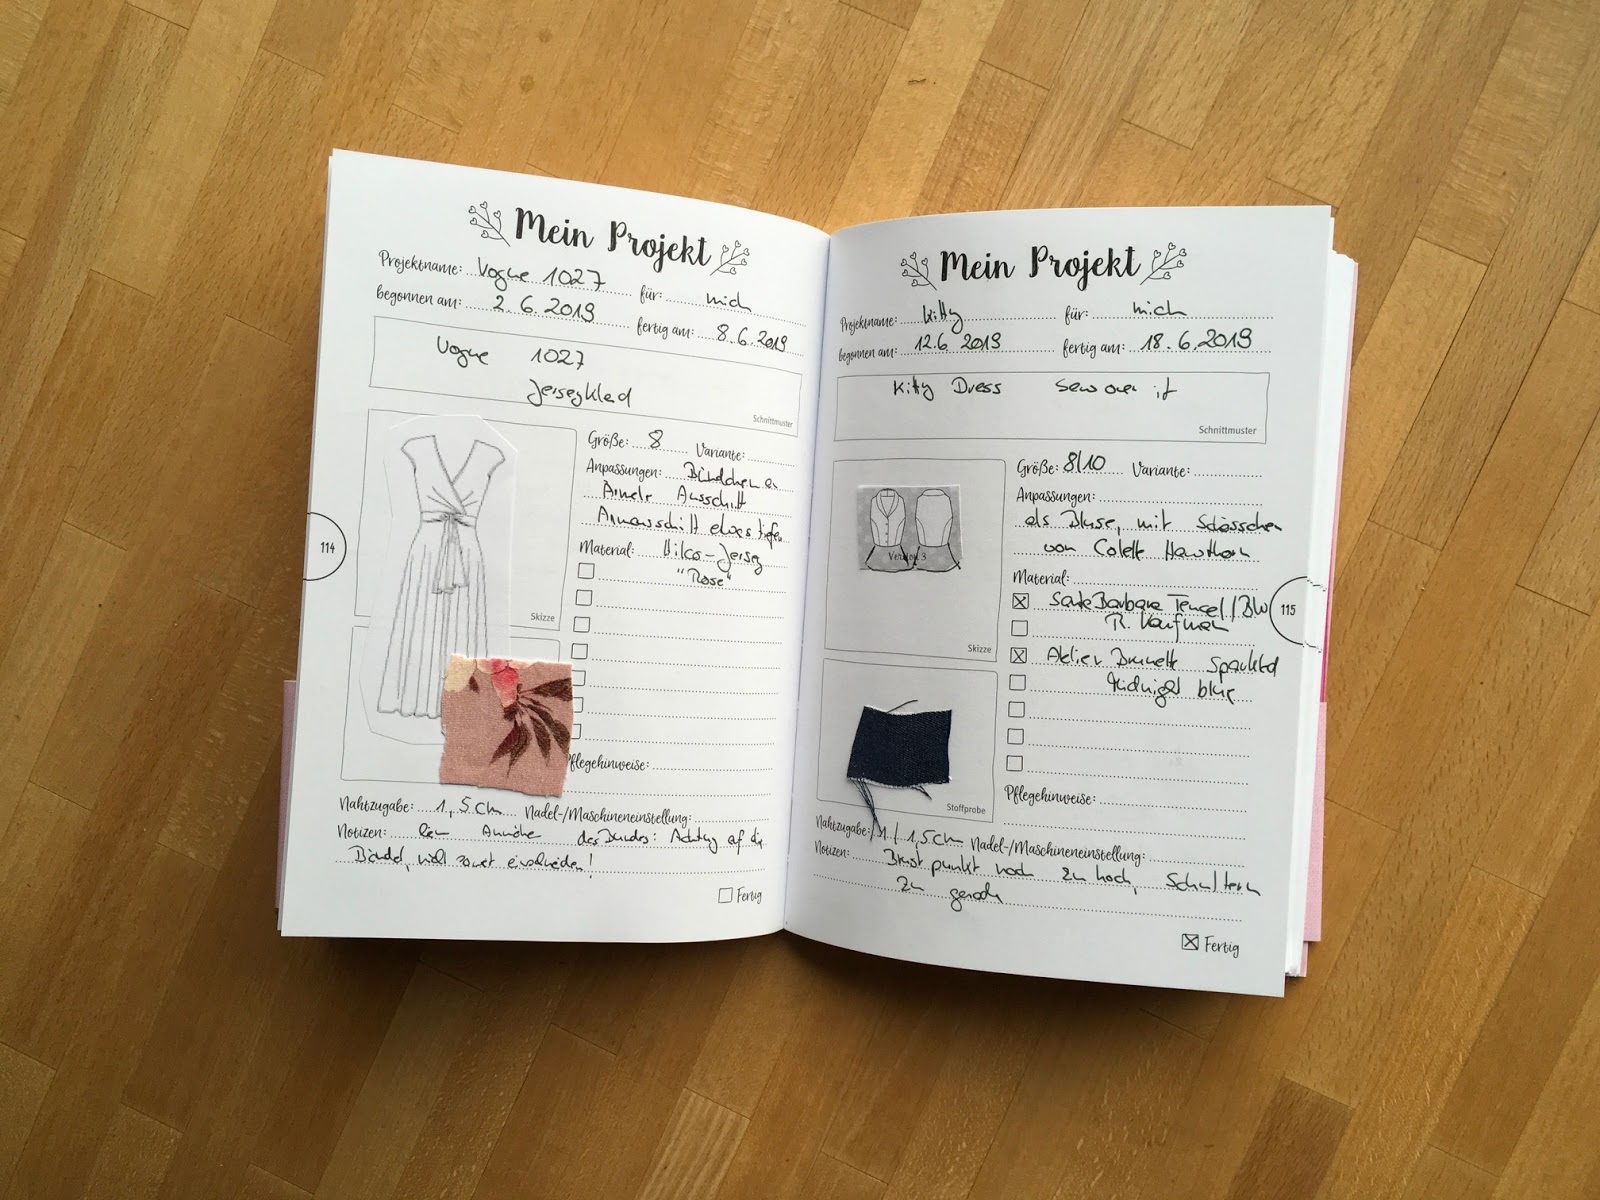 Mein Projekt
Projektname: Vogue 1027 für: mich
begonnen am: 2.6.2019 fertig am: 8.6.2019
Vogue 1027
Jerseykleid
Schnittmuster
Größe: 8 Variante:
Anpassungen: Bündchen an
Ärmeln Ausschnitt
Armausschnitt etwas tiefer
Material: Hilco-Jersey
"Rose"
114
Skizze
Pflegehinweise:
Nahtzugabe: 1,5 cm Nadel-/Maschineneinstellung:
Notizen: beim Annähen des Bundes: Achtung auf die
Bändel, nicht soweit einschneiden!
Fertig
Mein Projekt
Projektname: Kitty für: mich
begonnen am: 12.6.2019 fertig am: 18.6.2019
Kitty Dress Sew over it
Schnittmuster
Größe: 8/10 Variante:
Anpassungen:
als Bluse, mit Schösschen
von Colette Hawthorn
Version 3
Material:
Santa Barbara Tencel/BW
R. Kaufman
115
Skizze
Atelier Brunette
Midnight blue
Pflegehinweise:
Stoffprobe
Nahtzugabe: 1/1,5cm Nadel-/Maschineneinstellung:
Notizen: Brustpunkt noch zu hoch, Schultern
zu gerade
Fertig